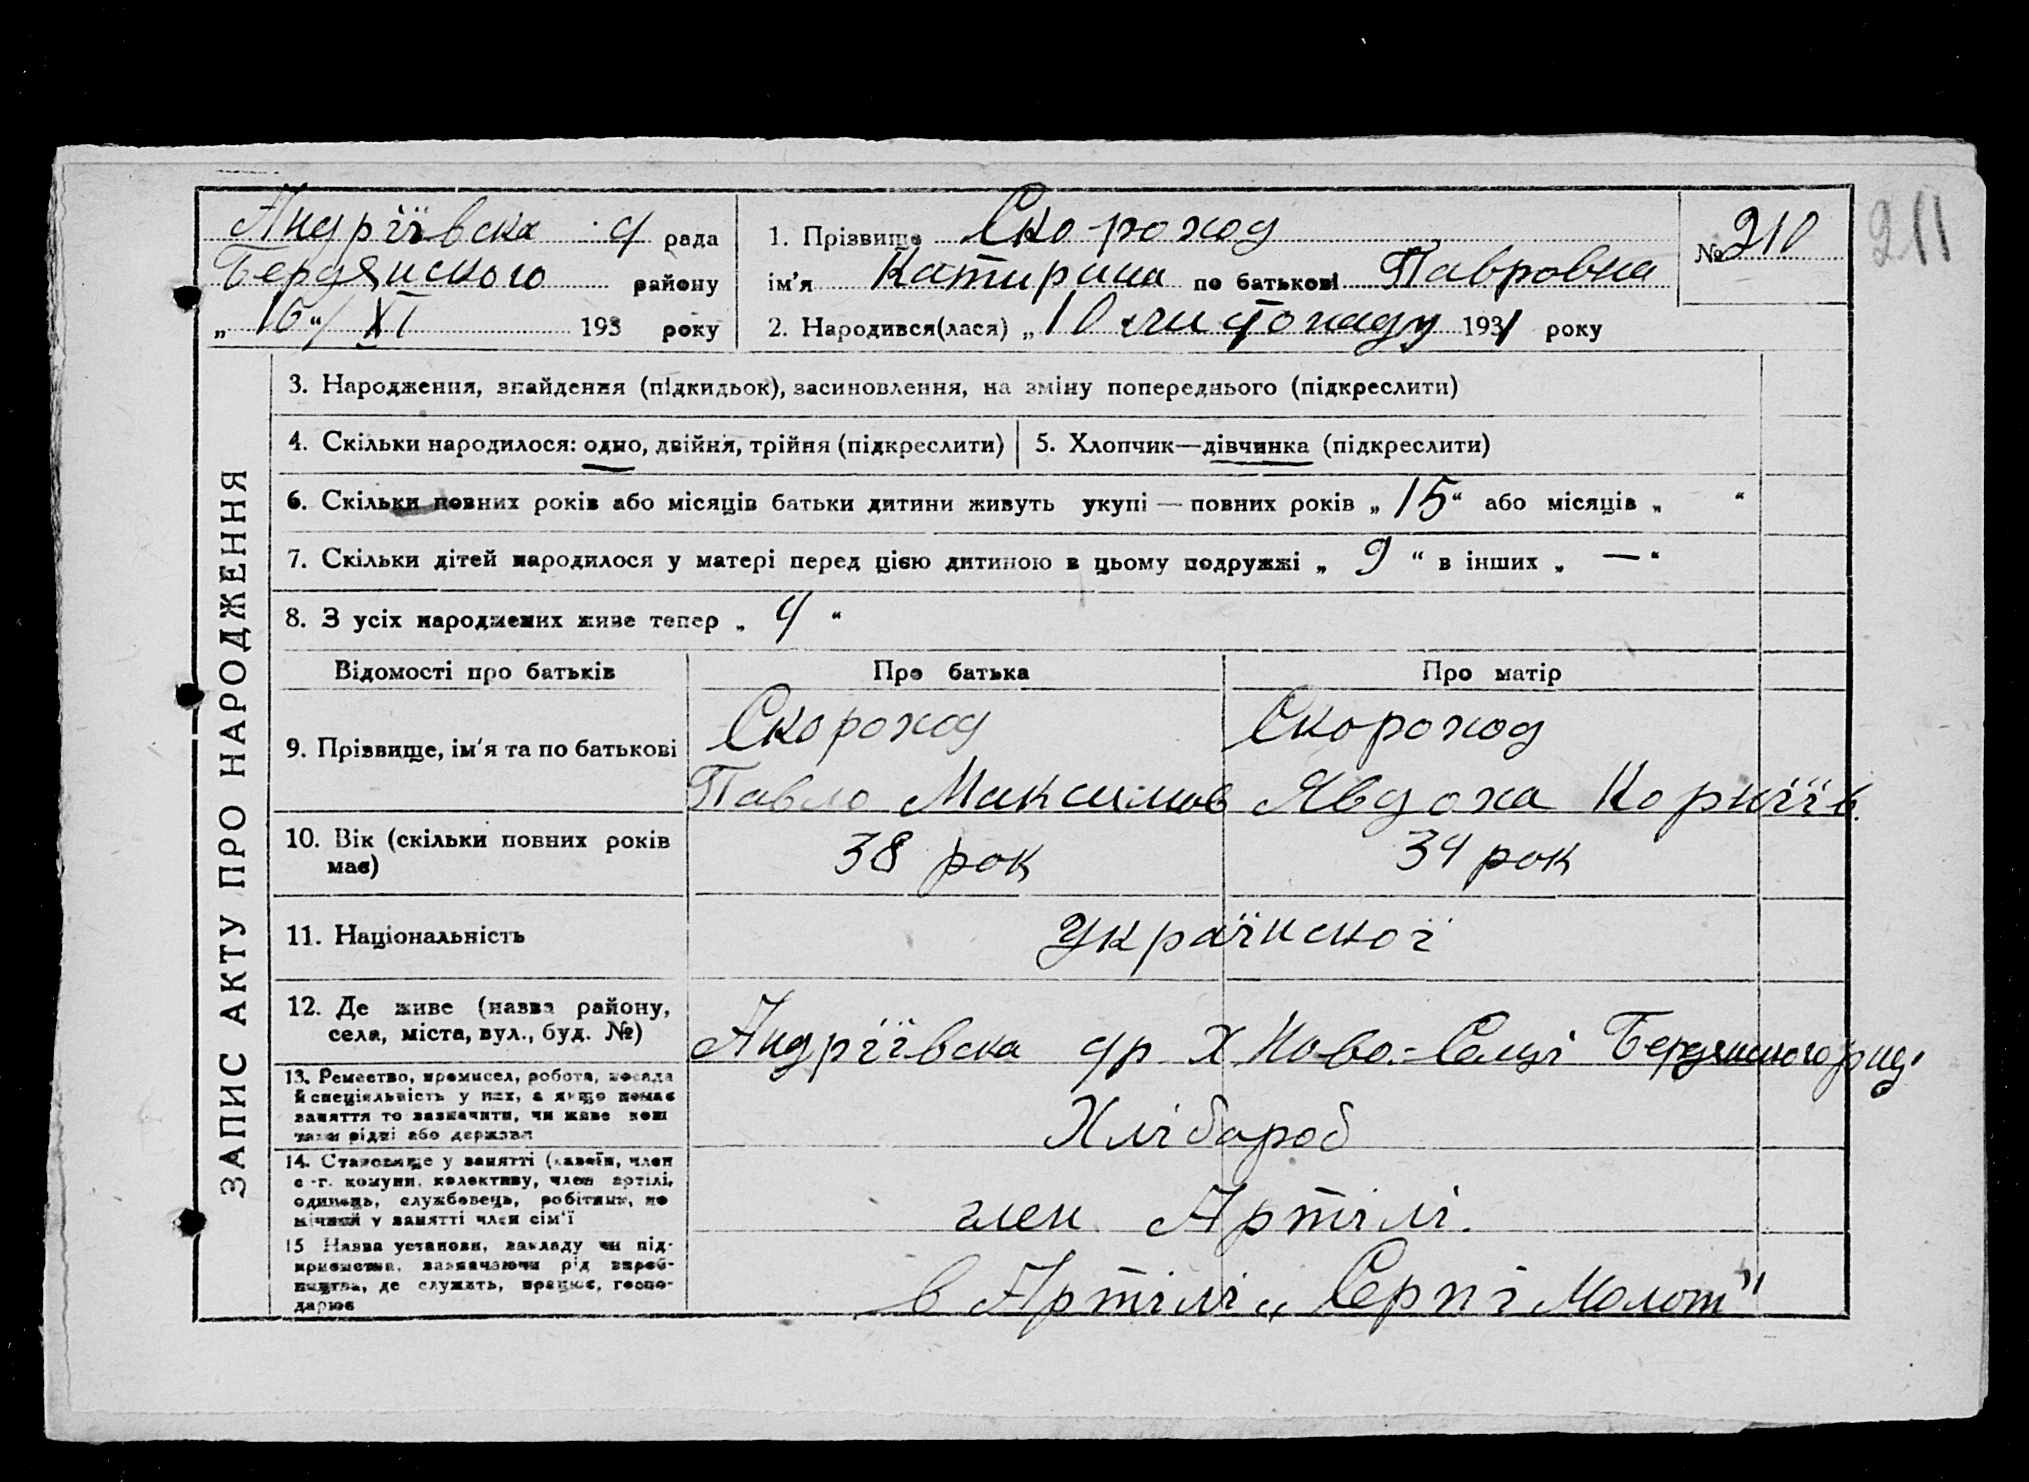 Андріївска с/ рада
Бердянского району
„16“/XI 193 року
1. Прізвище Скороход
ім'я Катирина по батькові Павровна
2. Народився(лася) „10 листопаду 1931 року
№ 210
211
ЗАПИС АКТУ ПРО НАРОДЖЕННЯ
3. Народження, знайдення (підкидьок), засиновлення, на зміну попереднього (підкреслити)
4. Скільки народилося: одно, двійня, трійня (підкреслити)
5. Хлопчик—дівчинка (підкреслити)
6. Скільки повних років або місяців батьки дитини живуть укупі — повних років „15“ або місяців „ “
7. Скільки дітей народилося у матері перед цією дитиною в цьому подружжі „ 9 “ в інших „ — “
8. З усіх народжених живе тепер „ 4 “
Відомості про батьків
Про батька
Про матір
9. Прізвище, ім'я та по батькові
Скороход
Павло Максимов
Скороход
Явдоха Корніїв.
10. Вік (скільки повних років
має)
38 рок
34 рок
11. Національність
Українскої
12. Де живе (назва району,
села, міста, вул., буд. №)
Андріївска с/р х Ново-Селці Бердянского рид.
13. Ремество, промисел, робота, посада
й спеціяльність у них, а якщо немає
заняття то зазначити, чи живе кош
тами рідні або держави
Хлібороб
14. Становище у занятті (хазяїн, член
с.-г. комуни, колективу, член артілі,
одинець, службовець, робітник, по
мічний у занятті член сім'ї
член Артілі.
15 Назва установи, закладу чи під-
приємства, зазначаючи рід вироб-
ництва, де служить, працює, госпо-
дарює
в Артілі „Серп і Молот"